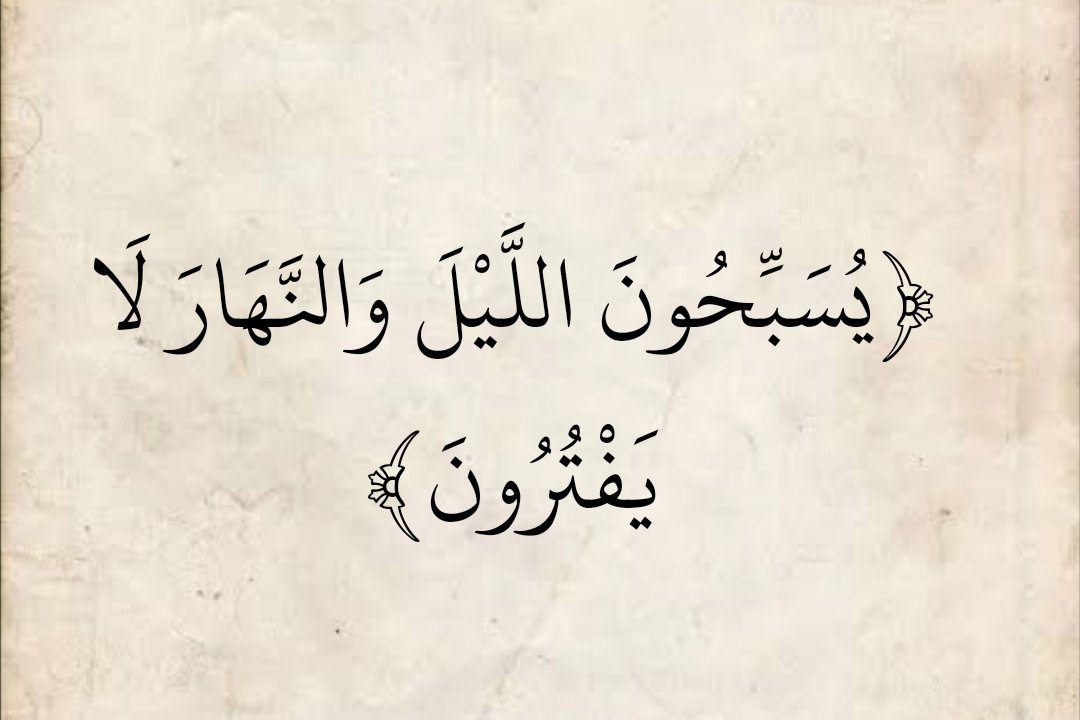 ﴿يُسَبِّحُونَ اللَّيْلَ وَالنَّهَارَ لَا
يَفْتُرُونَ﴾